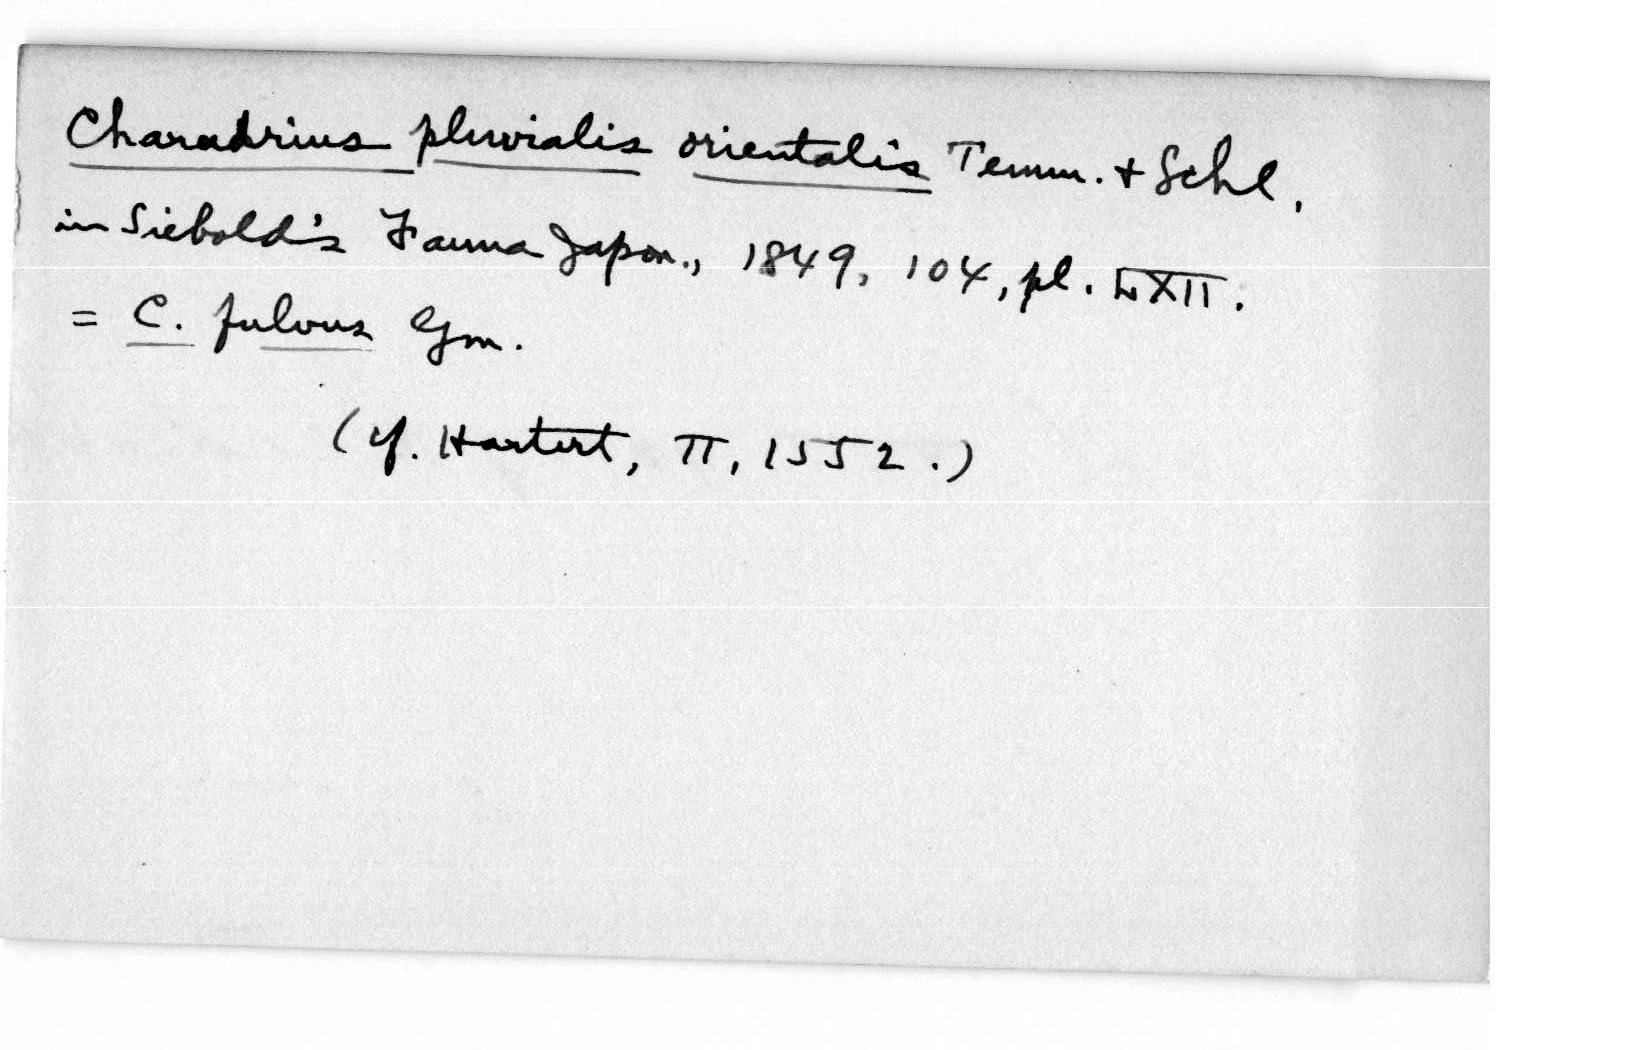 Charadrius pluvialis orientalis Temm. + Schl.,
in Siebold's Fauna Japon., 1849, 104, pl. LXII.
= C. fulvus Gm.
(cf. Hartert, II, 1552.)